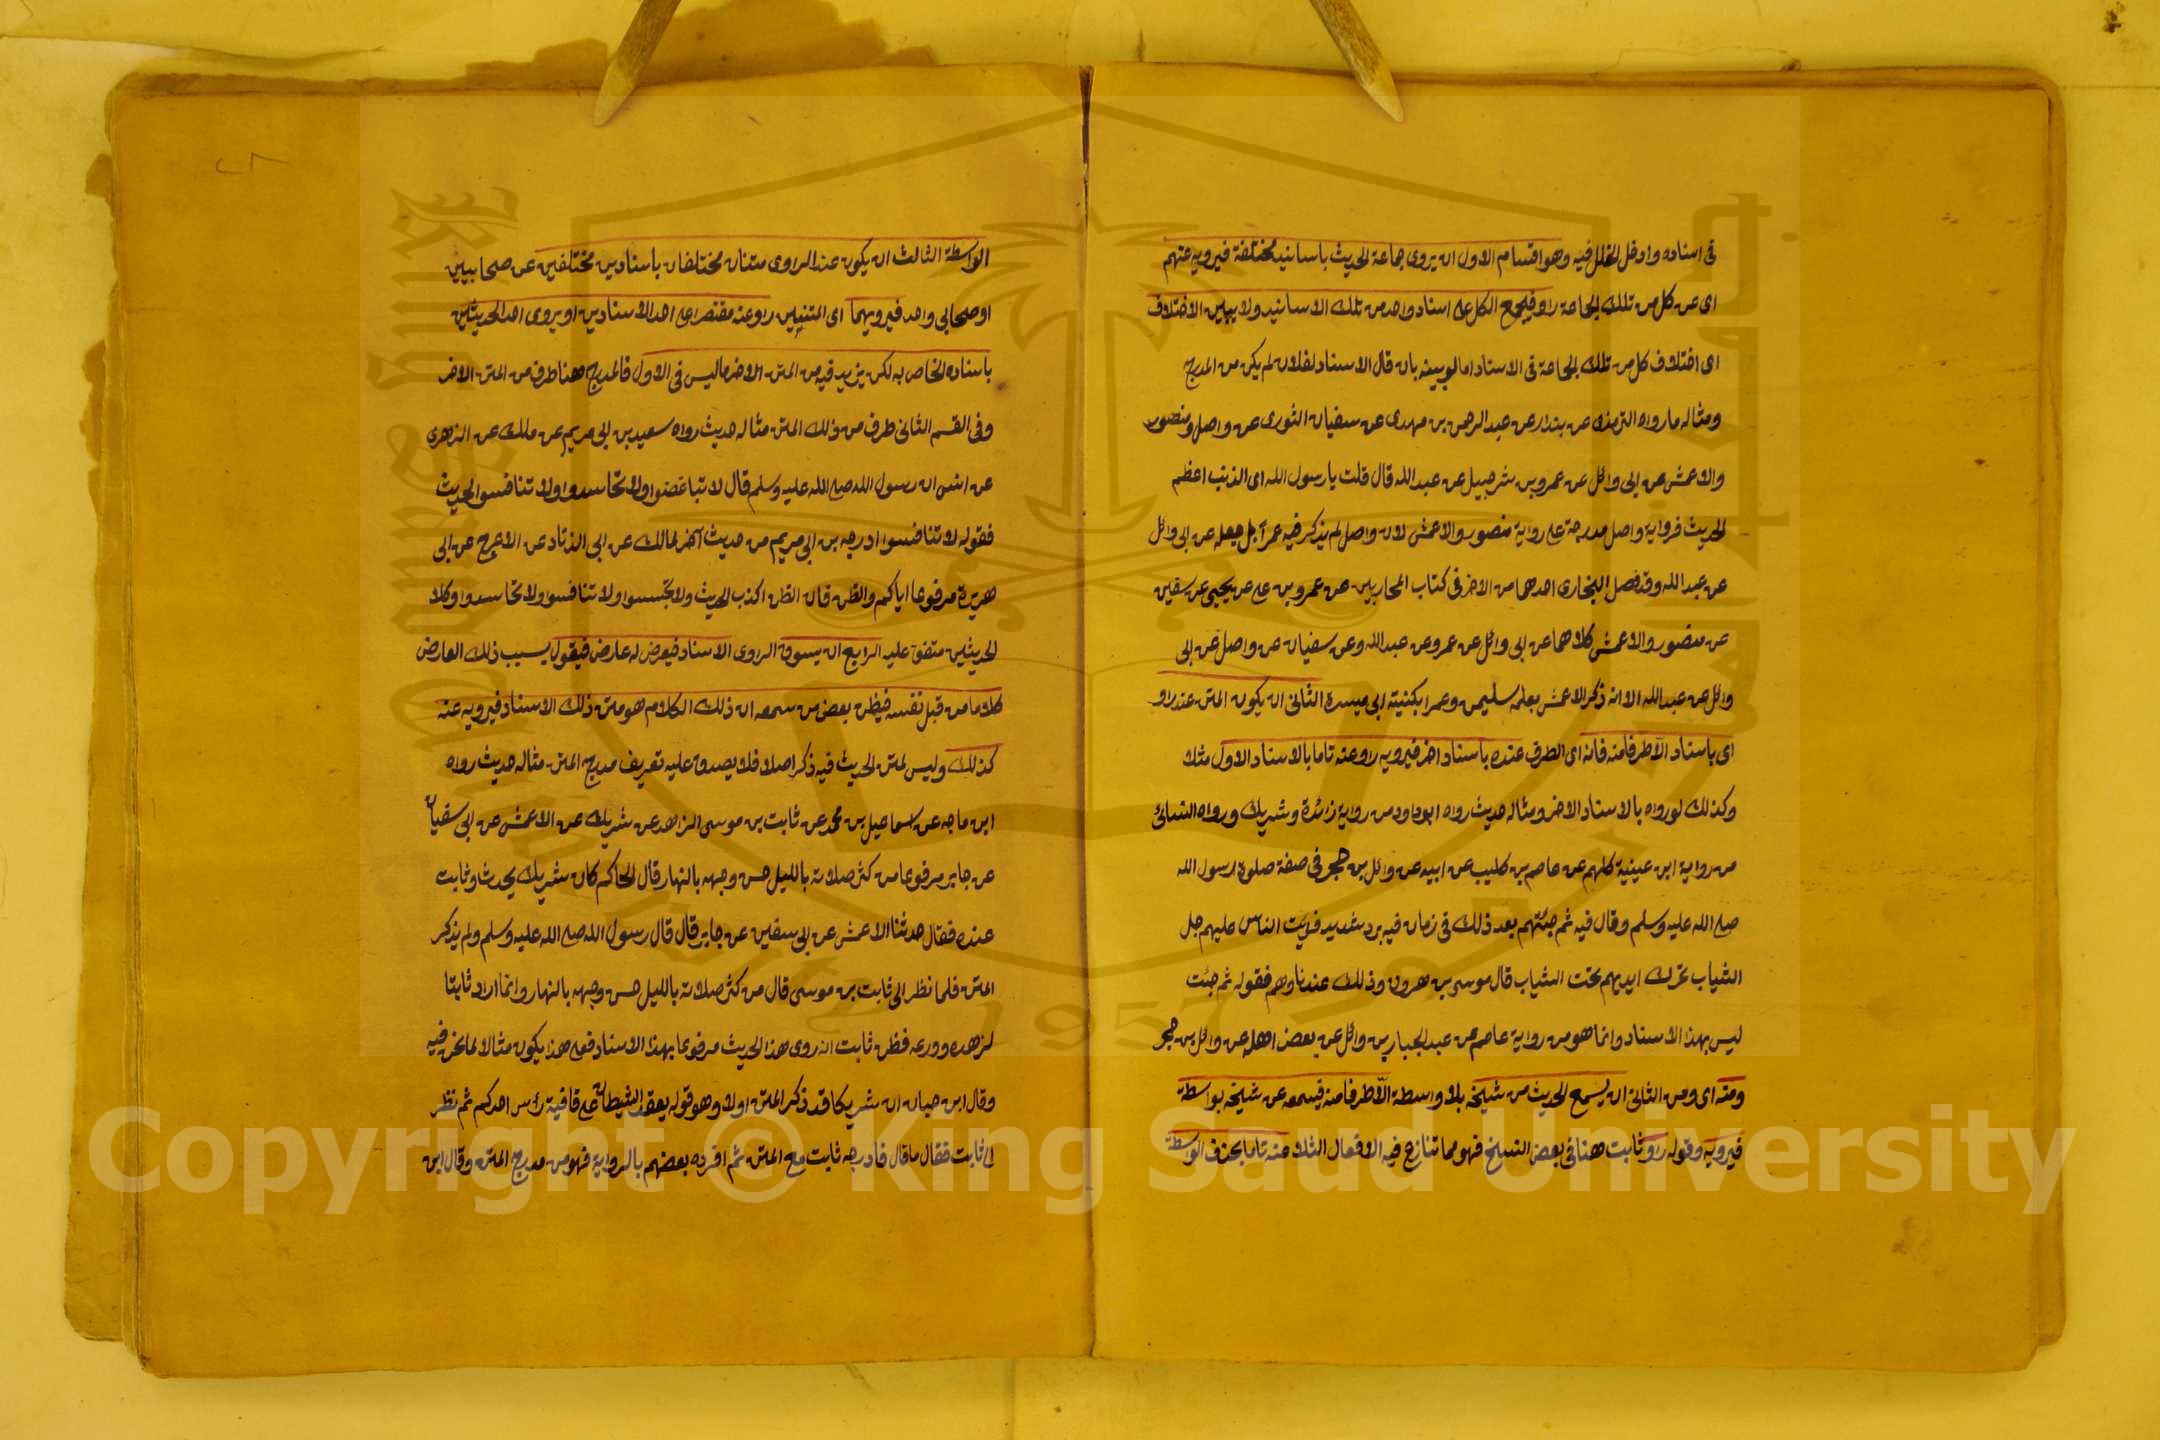 فى اسناده وادخل الخلل فيه وهو اقسام الاول ان يروى جماعة الحديث باسانيد مختلفة فيرويه عنهم
اى عن كل من تلك الجماعة راو فيجمع الكل على اسناد واحد من تلك الاسانيد ولا يبين الاختلاف
اى اختلاف كل من تلك الجماعة فى الاسناد اما لو بينه بان قال الاسناد لفلان لم يكن من المدرج
ومثاله ما رواه الترمذى عن بندار عن عبد الرحمن بن مهدى عن سفيان الثورى عن واصل ومنصور
والاعمش عن ابى وائل عن عمرو بن شرجبيل عن عبد الله قال قلت يا رسول الله اى الذنب اعظم
الحديث فرواية واصل مدرجة على رواية منصور والاعمش لان واصل لم يذكر فيه عمرا بل جعله عن ابى وائل
عن عبد الله وقد فصل البخارى احدهما من الاخر فى كتاب المحاربين عن عمرو بن على عن يحيى عن سفين
عن منصور والاعمش كلاهما عن ابى وائل عن عمرو عن عبد الله وعن سفيان عن واصل عن ابى
وائل عن عبد الله الا انه ذكر الاعمش بعلمه سليمن وعمرا بكنيته ابى ميسرة الثانى ان يكون المتن عند راو
اى باسناد الا طرفا منه فانه اى الطرف عنده باسناد اخر فيرويه راو عنه تاما بالاسناد الاول مثلا
وكذلك لو رواه بالاسناد الاخر ومثاله حديث رواه ابو داود من رواية زائدة وشريك ورواه النسائى
من رواية ابن عينية كلهم عن عاصم بن كليب عن ابيه عن وائل بن حجر فى صفة صلوة رسول الله
صلى الله عليه وسلم وقال فيه ثم جئتهم بعد ذلك فى زمان فيه برد شديد فرايت الناس عليهم جل
الثياب تحرك ايديهم تحت الثياب قال موسى بن هرون وذلك عندنا وهم فقوله ثم جئت
ليس بهذا الاسناد وانما هو من رواية عاصم عن عبد الجبار بن وائل عن بعض اهله عن وائل بن حجر
ومنه اى ومن الثانى ان يسمع الحديث من شيخه بلا واسطة الا طرفا منه فيسمعه عن شيخه بواسطة
فيرويه وقوله راو ثابت هنا فى بعض النسخ فهو مما تنازع فيه الافعال الثلاث عنه تاما بحذف الواسطة
الواسطة الثالث ان يكون عند الراوى متنان مختلفان باسنادين مختلفين عن صحابيين
او صحابى واحد فيرويهما اى المتنين راو عنه مقتصرا على احد الاسنادين او يروى احد الحديثين
باسناده الخاص به لكن يزيد فيه من المتن الاخر ما ليس فى الاول فالمدرج هنا طرف من المتن الاخر
وفى القسم الثانى طرف من ذلك المتن مثاله حديث رواه سعيد بن ابى مريم عن ملك عن الزهرى
عن انس ان رسول الله صلى الله عليه وسلم قال لا تباغضوا ولا تحاسدوا ولا تنافسوا الحديث
فقوله لا تنافسوا ادرجه ابن ابى مريم من حديث آخر لمالك عن ابى الزناد عن الاعرج عن ابى
هريرة مرفوعا اياكم والظن فان الظن اكذب الحديث ولا تجسسوا ولا تنافسوا ولا تحاسدوا وكلا
الحديثين متفق عليه الرابع ان يسوق الراوى الاسناد فيعرض له عارض فيقول بسبب ذلك العارض
كلاما من قبل نفسه فيظن بعض من سمعه ان ذلك الكلام هو متن ذلك الاسناد فيرويه عنه
كذلك وليس لمتن الحديث فيه ذكر اصلا فلا يصدق عليه تعريف مدرج المتن مثاله حديث رواه
ابن ماجه عن اسماعيل بن محمد عن ثابت بن موسى الزاهد عن شريك عن الاعمش عن ابى سفيان
عن جابر مرفوعا من كثر صلاته بالليل حسن وجهه بالنهار قال الحاكم كان شريك يحدث وثابت
عنده فقال حدثنا الاعمش عن ابى سفين عن جابر قال قال رسول الله صلى الله عليه وسلم ولم يذكر
المتن فلما نظر الى ثابت بن موسى قال من كثر صلاته بالليل حسن وجهه بالنهار وانما اراد ثابتا
لزهده وورعه فظن ثابت انه روى هذا الحديث مرفوعا بهذا الاسناد فعلى هذا يكون مثالا لما نحن فيه
وقال ابن حبان ان شريكا قد ذكر المتن اولا وهو قوله يعقد الشيطان على قافية راس احدكم ثم نظر
الى ثابت فقال ما قال فادرجه ثابت مع المتن ثم افرده بعضهم بالرواية فهو من مدرج المتن وقال ابن
Copyright © King Saud University
King Saud University
1957